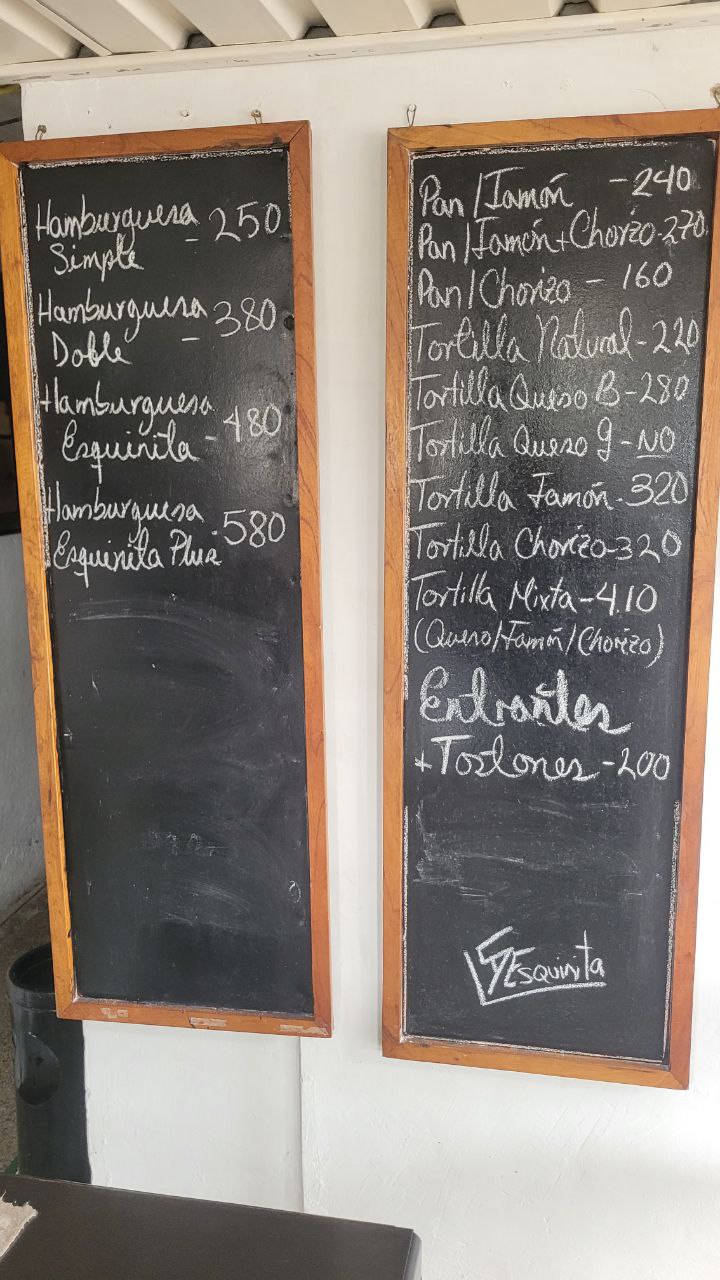 Hamburguesa - 250
Simple
Hamburguesa - 380
Doble
Hamburguesa
Esquinita - 480
Hamburguesa
Esquinita Plus - 580
Pan/Jamón - 240
Pan/Jamón+Chorizo-270
Pan/Chorizo - 160
Tortilla Natural-220
Tortilla Queso B-280
Tortilla Queso g-NO
Tortilla Jamón-320
Tortilla Chorizo-320
Tortilla Mixta-410
(Queso/Jamón/Chorizo)
Entrantes
+Tostones-200
Esquinita